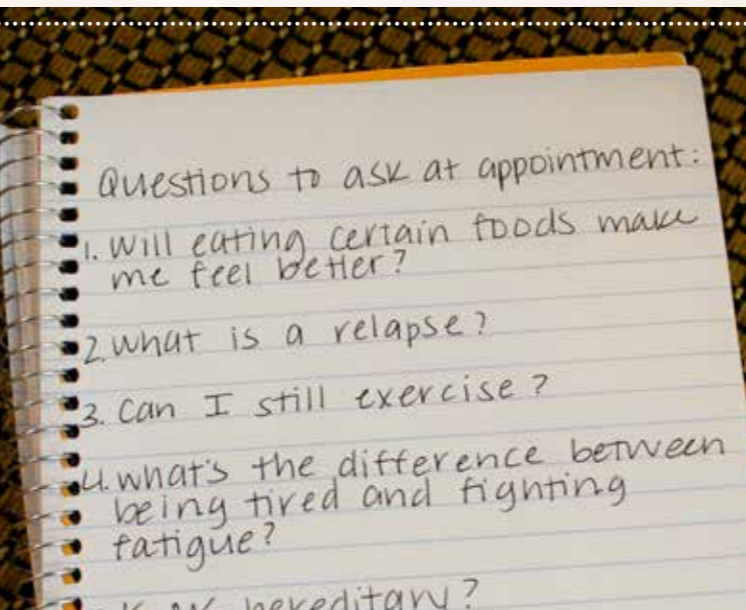 Questions to ask at appointment:
1. Will eating certain foods make
me feel better?
2. What is a relapse?
3. Can I still exercise?
4. What's the difference between
being tired and fighting
fatigue?
hereditary?